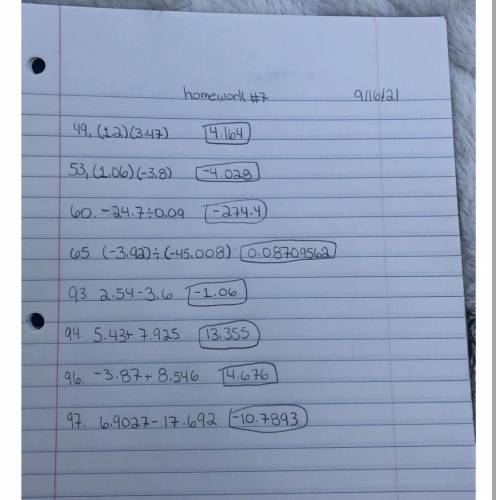 homework #7 9/16/21
49. (1.2)(3.47) 4.164
53, (1.06)(-3.8) -4.028
60. -24.7÷0.09 -274.4
65 (-3.92)÷(-45.008) 0.08709562
93 2.54-3.6 -1.06
94. 5.43+ 7.925 13.355
96. -3.87+ 8.546 4.676
97. 6.9027-17.692 -10.7893